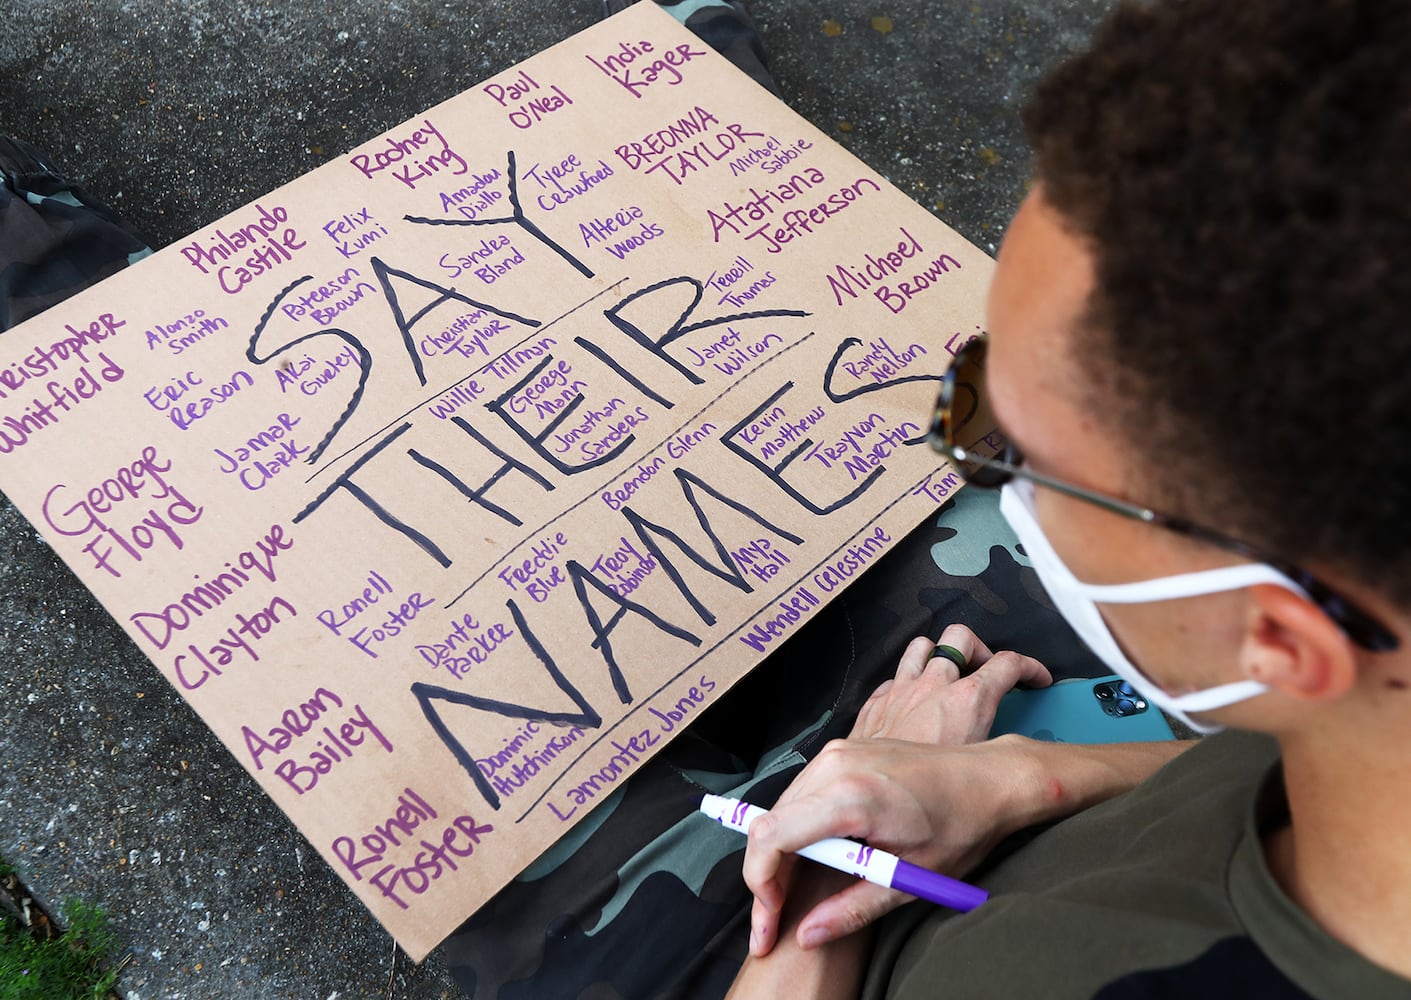 India
Kager
Paul
O'Neal
Rodney
King
BREONNA
TAYLOR
Michael
Sabbie
Tyree
Crawford
Amadou
Diallo
Atatiana
Jefferson
Alteria
Woods
Philando
Castile
Felix
Kumi
Sandra
Bland
Michael
Brown
Paterson
Brown
SAY
Terrill
Thomas
Christian
Taylor
Alonzo
Smith
ristopher
Whitfield
Eric
Reason
Akai
Gurley
Willie Tillman
THEIR
Janet
Wilson
Randy
Nelson
George
Mann
Jonathan
Sanders
Jamar
Clark
Kevin
Matthews
Trayvon
Martin
Brendon Glenn
NAMES
George
Floyd
Tam
Freddie
Blue
Troy
Robinson
Anya
Hall
Dominique
Clayton
Ronell
Foster
Dante
PARKER
Wendell Celestine
Lamontez Jones
Dominic
Hutchinson
Aaron
Bailey
Ronell
Foster